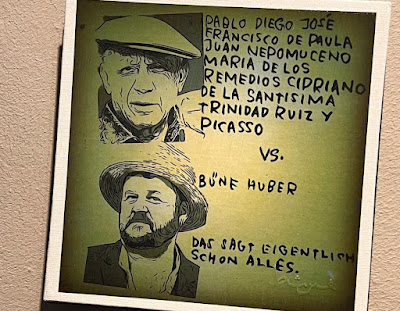 PABLO DIEGO JOSÉ
FRANCISCO DE PAULA
JUAN NEPOMUCENO
MARIA DE LOS
REMEDIOS CIPRIANO
DE LA SANTISIMA
TRINIDAD RUIZ Y
PICASSO
VS.
BÜNE HUBER
DAS SAGT EIGENTLICH
SCHON ALLES.